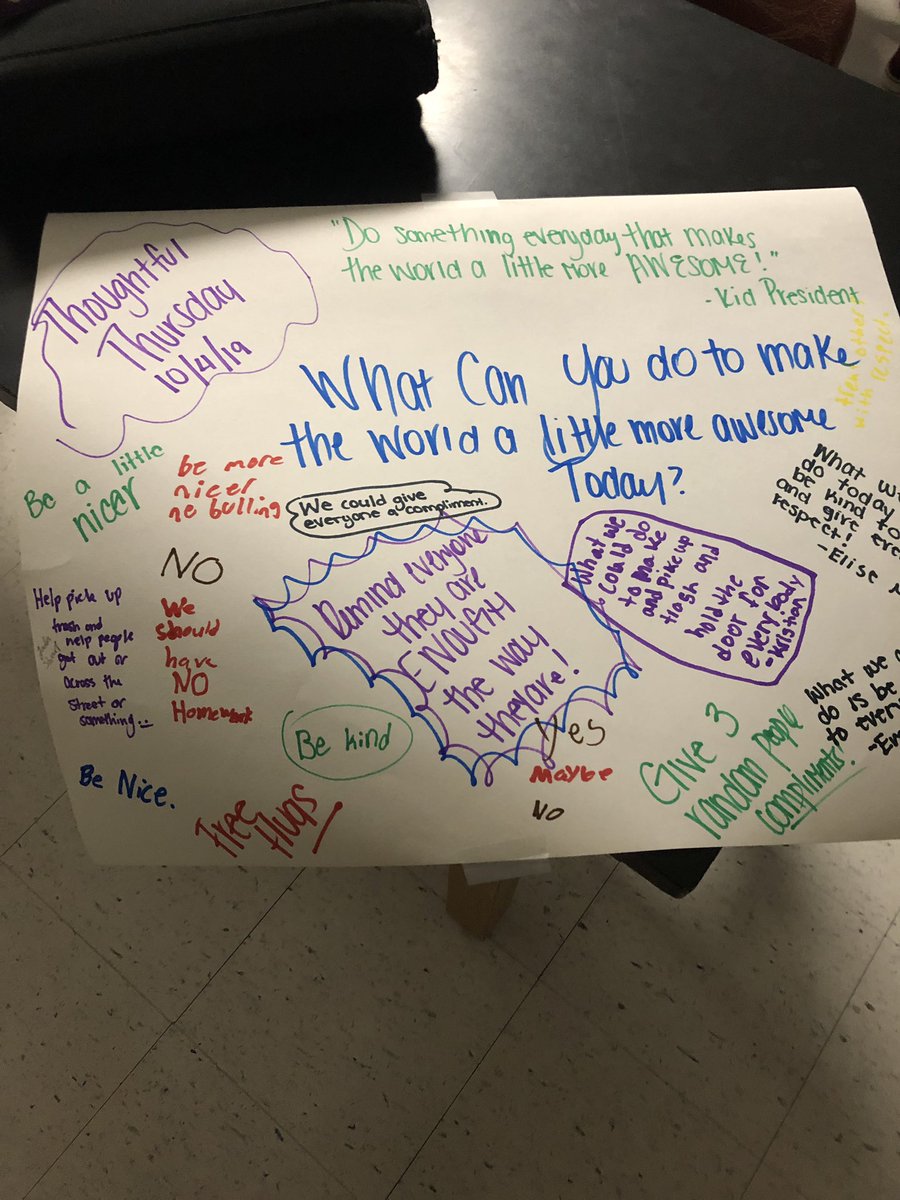 Thoughtful
Thursday
10/4/19
"Do something everyday that makes
the world a little more AWESOME!"
-Kid President
What Can you do to make
the world a little more awesome
Today?
treat others
with respect.
Be a little
nicer
be more
nicer
no bulling
We could give
everyone a compliment.
NO
We
should
have
NO
Homework
Help pick up
trash and
help people
get out or
across the
street or
something
Remind everyone
they are
ENOUGH
the way
they are!
What we
could do
to make
and pike up
trash and
hold the
door for
every body
-Kristian
What w
do today
be kind to
and give
respect!
-Elise
What we
do is be
to every
Be kind
Yes
Maybe
NO
Give 3
random people
compliments!
Be Nice.
Free
Hugs!